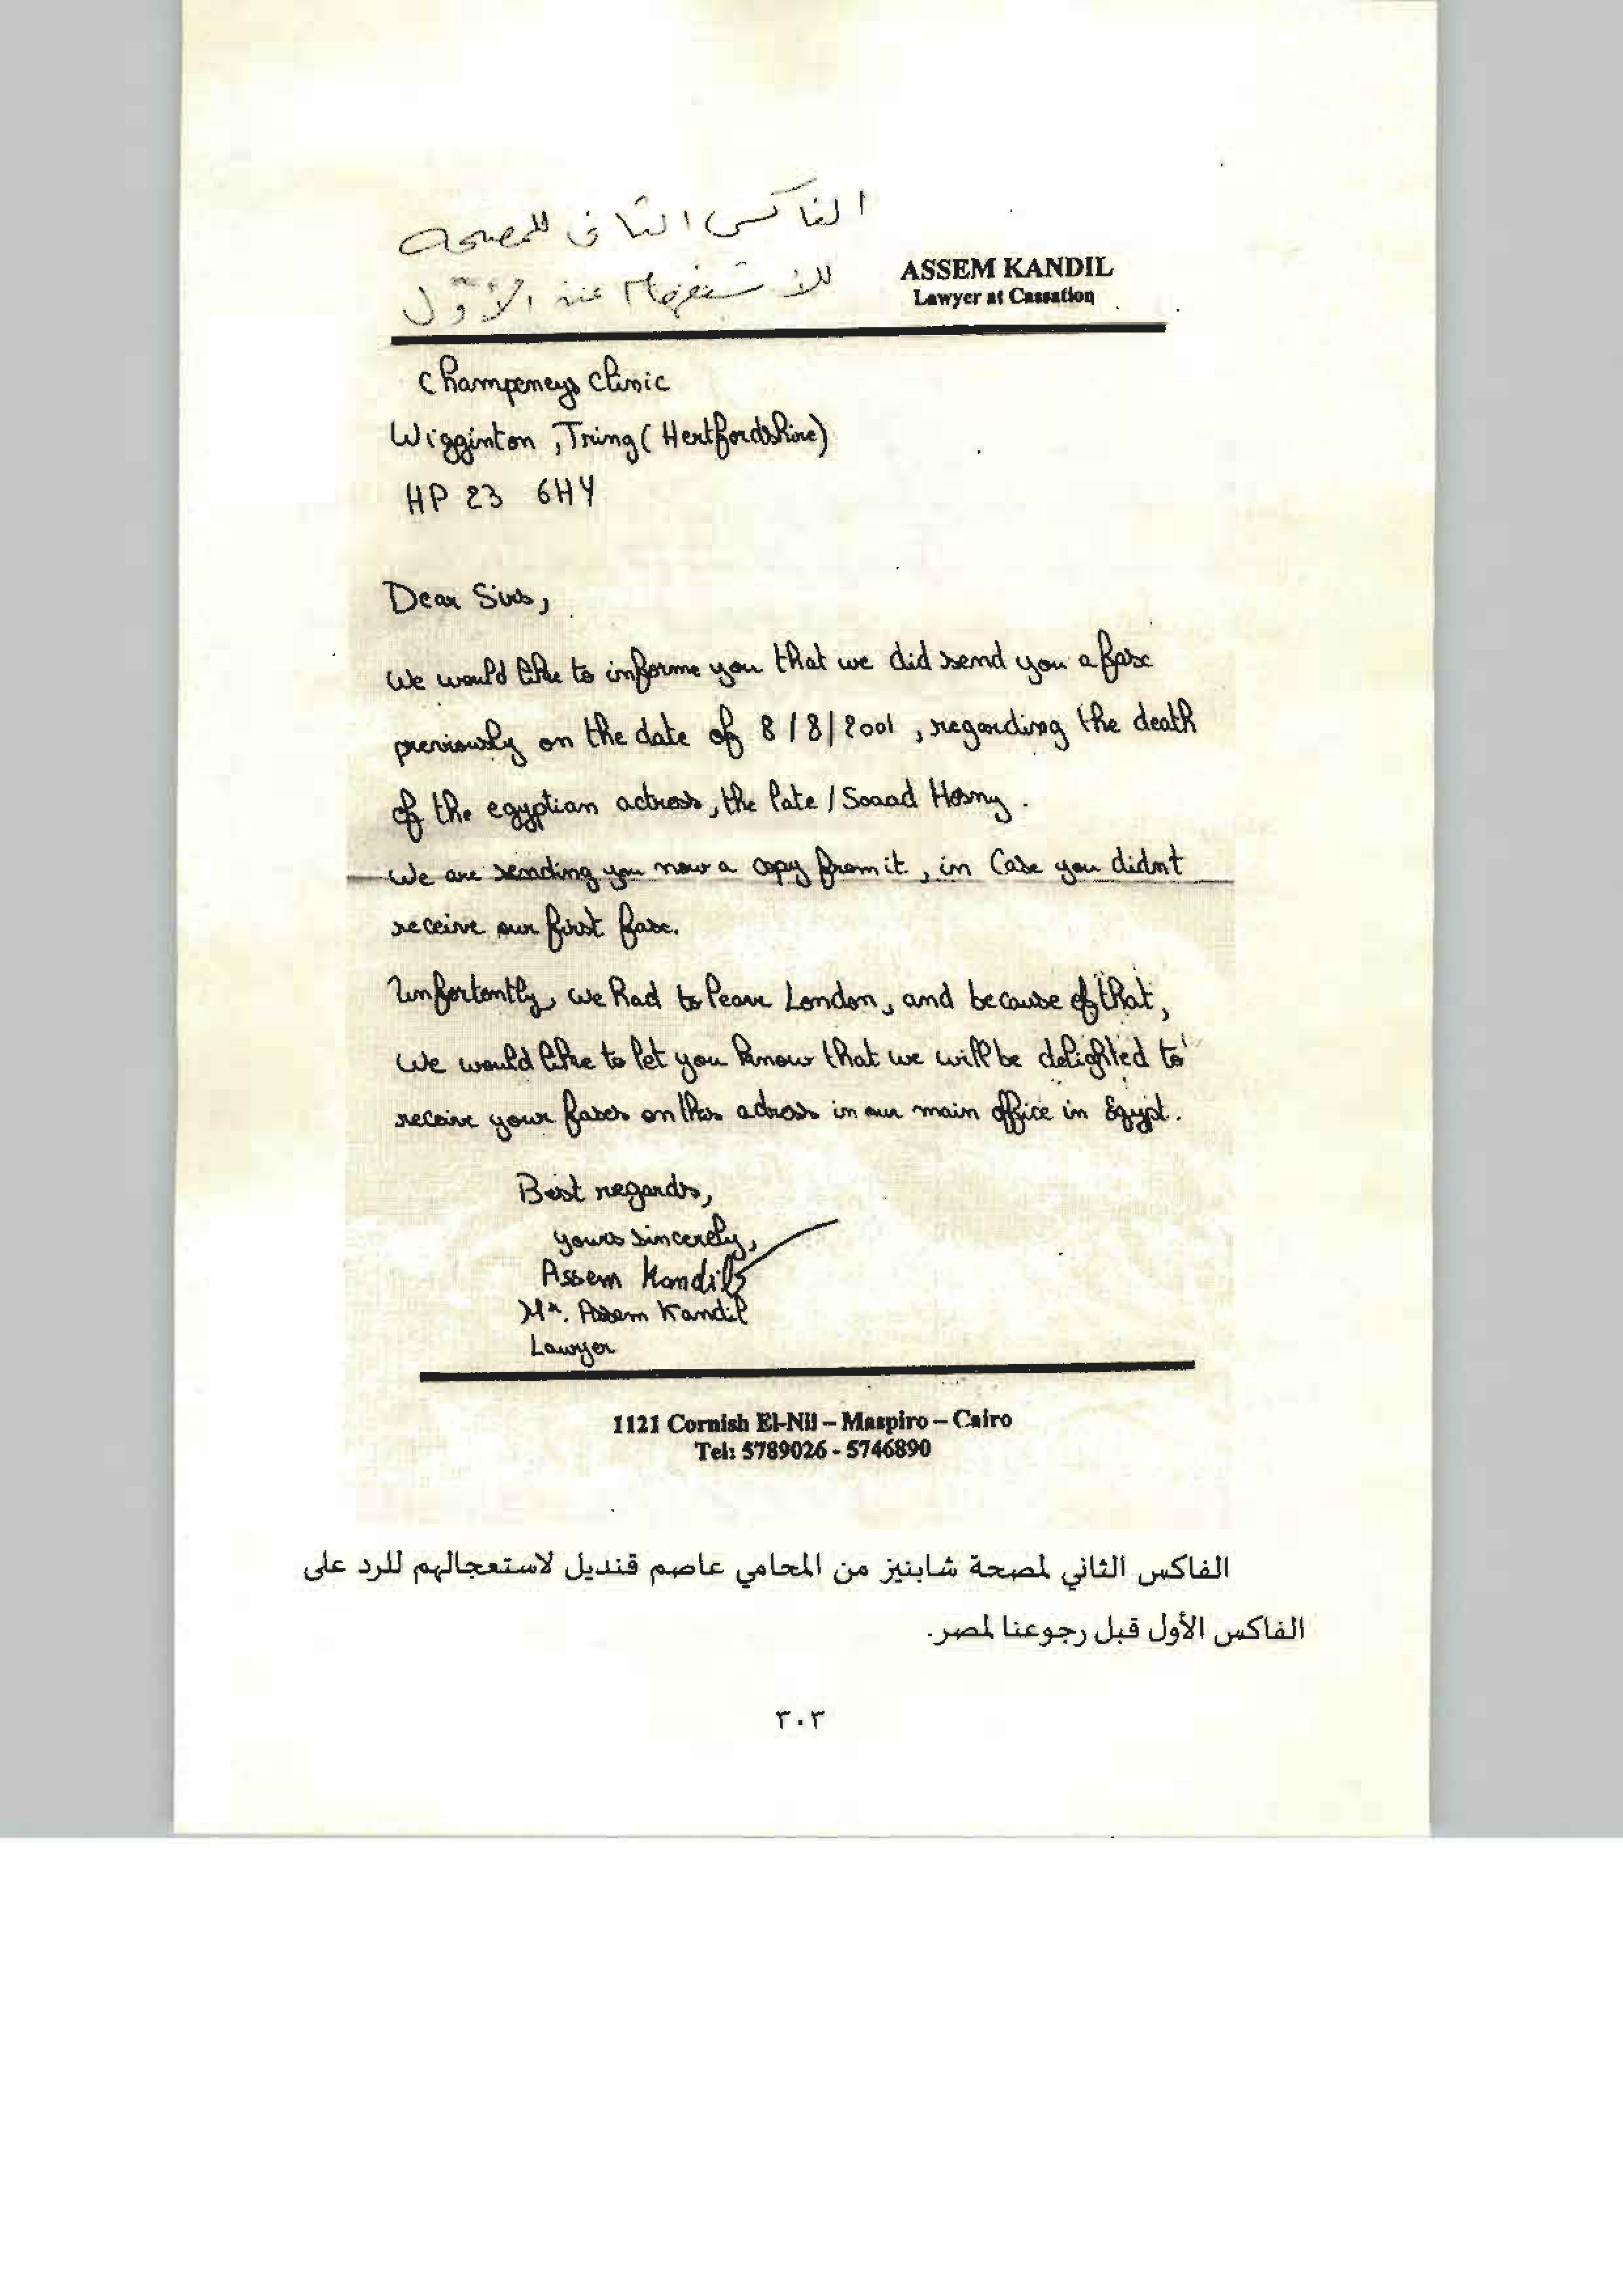 الفاكس الثانى للمصحه
للاستفهام عن الأوّل
ASSEM KANDIL
Lawyer at Cassation
Champeneys Clinic
Wigginton, Tring (Hertfordshire)
HP 23 6HY
Dear Sirs,
We would like to informe you that we did send you a fax
previously on the date of 8/8/2001, regarding the death
of the egyptian actress, the late / Soaad Hosny.
We are sending you now a copy from it, in Case you didn't
receive our first fax.
Unfortently, we had to leave London, and because of that,
We would like to let you know that we will be delighted to
receive your faxes on this adress in our main office in Egypt.
Best regards,
yours sincerely,
Assem Kandil
Mr. Assem Kandil
Lawyer
1121 Cornish El-Nil – Maspiro – Cairo
Tel: 5789026 - 5746890
الفاكس الثاني لمصحة شابنيز من المحامي عاصم قنديل لاستعجالهم للرد على
الفاكس الأول قبل رجوعنا لمصر.
٣٠٣